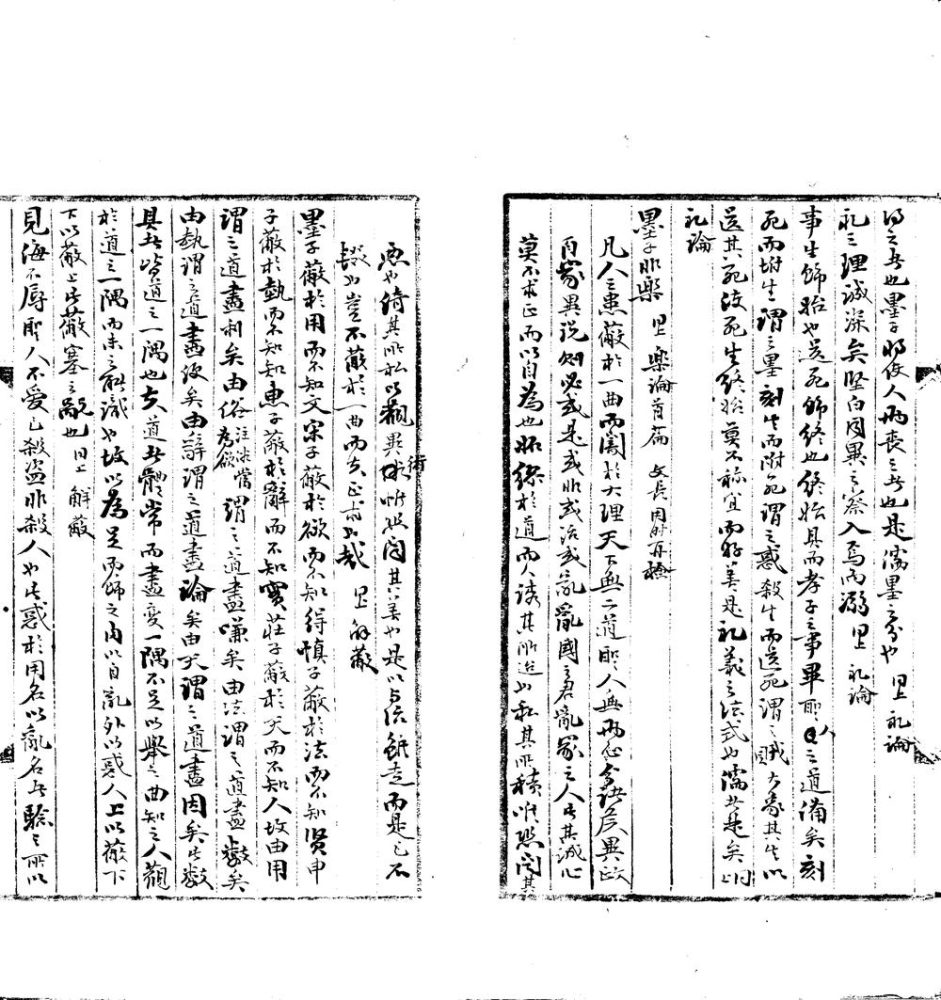 得之者也墨子將使人兩喪之者也是儒墨之分也　同上　礼論
礼之理誠深矣堅白同異之察入焉而溺　同上　礼論
事生飾始也送死飾終也終始具而孝子之事畢聖人之道備矣刻
死而附生謂之墨刻生而附死謂之惑殺生而送死謂之賊大象其生以
送其死使死生終始莫不称宜而好善是礼義之法式也儒者是矣同
礼論
墨子非樂　同上　樂論首篇　文長用時再檢
凡人之患蔽於一曲而闇於大理天下無二道聖人無兩心今諸侯異政
百家異説則必或是或非或治或亂亂國之君亂家之人此其誠心
莫不求正而以自為也妬繆於道而人誘其所迨也私其所積唯恐聞其
惡也倚其所私以觀異術唯恐聞其美也是以与治雖走而是己不
輟也豈不蔽於一曲而失正求也哉　同上　解蔽
墨子蔽於用而不知文宋子蔽於欲而不知得慎子蔽於法而不知賢申
子蔽於埶而不知知惠子蔽於辭而不知實莊子蔽於天而不知人故由用
謂之道盡利矣由俗注俗當為欲謂之道盡嗛矣由法謂之道盡數矣
由埶謂之道盡便矣由辭謂之道盡論矣由天謂之道盡因矣此數
具者皆道之一隅也夫道者體常而盡變一隅不足以舉之曲知之人觀
於道之一隅而未之能識也故以為足而飾之内以自亂外以惑人上以蔽下
下以蔽上此蔽塞之禍也　同上　解蔽
見侮不辱聖人不愛己殺盜非殺人也此惑於用名以亂名者驗之所以